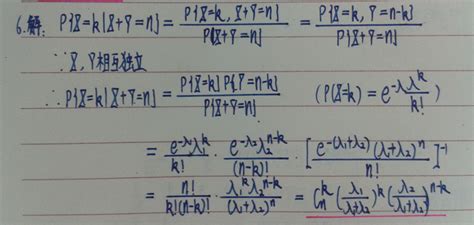 6.解: P{X=k|X+Y=n} = P{X=k, X+Y=n} / P{X+Y=n} = P{X=k, Y=n-k} / P{X+Y=n}
∵ X, Y相互独立
∴ P{X=k|X+Y=n} = P{X=k}P{Y=n-k} / P{X+Y=n} (P(X=k) = e^{-λ}λ^k / k!)
= e^{-λ₁}λ₁^k / k! · e^{-λ₂}λ₂^{n-k} / (n-k)! · [e^{-(λ₁+λ₂)}(λ₁+λ₂)^n / n!]^{-1}
= n! / k!(n-k)! · λ₁^k λ₂^{n-k} / (λ₁+λ₂)^n = C_n^k (λ₁/λ₁+λ₂)^k (λ₂/λ₁+λ₂)^{n-k}